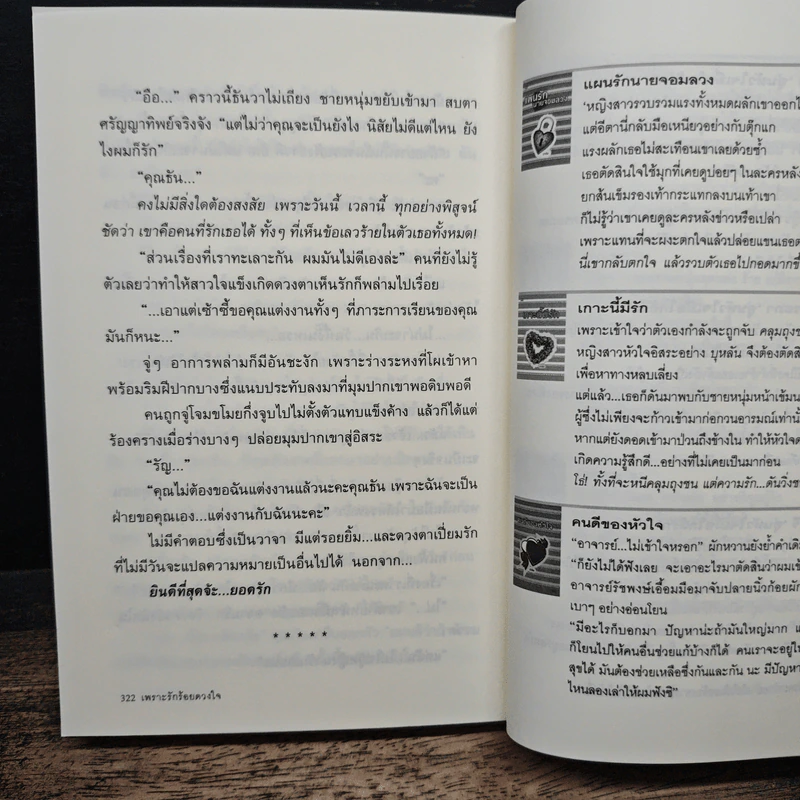 “อือ...” คราวนี้ธันวาไม่เถียง ชายหนุ่มขยับเข้ามา สบตา
ศรัญญาทิพย์จริงจัง “แต่ไม่ว่าคุณจะเป็นยังไง นิสัยไม่ดีแต่ไหน ยัง
ไงผมก็รัก”
“คุณธัน...”
คงไม่มีสิ่งใดต้องสงสัย เพราะวันนี้ เวลานี้ ทุกอย่างพิสูจน์
ชัดว่า เขาคือคนที่รักเธอได้ ทั้งๆ ที่เห็นข้อเลวร้ายในตัวเธอทั้งหมด!
“ส่วนเรื่องที่เราทะเลาะกัน ผมมันไม่ดีเองล่ะ” คนที่ยังไม่รู้
ตัวเลยว่าทำให้สาวใจแข็งเกิดดวงตาเห็นรักก็พล่ามไปเรื่อย
“...เอาแต่เซ้าซี้ขอคุณแต่งงานทั้งๆ ที่ภาระการเรียนของคุณ
มันก็หนะ...”
จู่ๆ อาการพล่ามก็มีอันชะงัก เพราะร่างระหงที่โผเข้าหา
พร้อมริมฝีปากบางซึ่งแนบประทับลงมาที่มุมปากเขาพอดิบพอดี
คนถูกจู่โจมขโมยกึ่งจูบไปไม่ตั้งตัวแทบแข็งค้าง แล้วก็ได้แต่
ร้องครางเมื่อร่างบางๆ ปล่อยมุมปากเขาสู่อิสระ
“รัญ...”
“คุณไม่ต้องขอฉันแต่งงานแล้วนะคะคุณธัน เพราะฉันจะเป็น
ฝ่ายขอคุณเอง...แต่งงานกับฉันนะคะ”
ไม่มีคำตอบซึ่งเป็นวาจา มีแต่รอยยิ้ม...และดวงตาเปี่ยมรัก
ที่ไม่มีวันจะแปลความหมายเป็นอื่นไปได้ นอกจาก...
ยินดีที่สุดจ้ะ...ยอดรัก
*****
322 เพราะรักร้อยดวงใจ
แผนรักนายจอมลวง
‘หญิงสาวรวบรวมแรงทั้งหมดผลักเขาออกไ
แต่อีตานี่กลับมือเหนียวอย่างกับตุ๊กแก
แรงผลักเธอไม่สะเทือนเขาเลยด้วยซ้ำ
เธอตัดสินใจใช้มุกที่เคยดูบ่อยๆ ในละครหลัง
ยกส้นเข็มรองเท้ากระแทกลงบนเท้าเขา
ก็ไม่รู้ว่าเขาเคยดูละครหลังข่าวหรือเปล่า
เพราะแทนที่จะผงะตกใจแล้วปล่อยแขนเธอต
นี่เขากลับตกใจ แล้วรวบตัวเธอไปกอดมากขึ้
เกาะนี้มีรัก
เกาะนี้มีรัก
เพราะเข้าใจว่าตัวเองกำลังจะถูกจับ คลุมถุงช
หญิงสาวหัวใจอิสระอย่าง บุหลัน จึงต้องตัดสิ
เพื่อหาทางหลบเลี่ยง
แต่แล้ว...เธอก็ดันมาพบกับชายหนุ่มหน้าเข้มน
ผู้ซึ่งไม่เพียงจะก้าวเข้ามาก่อกวนอารมณ์เท่านั้
หากแต่ยังดอดเข้ามาป่วนถึงข้างใน ทำให้หัวใจด
เกิดความรู้สึกดี...อย่างที่ไม่เคยเป็นมาก่อน
โธ่! ทั้งที่จะหนีคลุมถุงชน แต่ความรัก...ดันวิ่งช
คนดีของหัวใจ
“อาจารย์...ไม่เข้าใจหรอก” ผักหวานยังย้ำคำเดิม
“ก็ยังไม่ได้ฟังเลย จะเอาอะไรมาตัดสินว่าผมเข้
อาจารย์รัชพงษ์เอื้อมมือมาจับปลายนิ้วก้อยผัก
เบาๆ อย่างอ่อนโยน
“มีอะไรก็บอกมา ปัญหาน่ะถ้ามันใหญ่มาก แ
ก็โยนไปให้คนอื่นช่วยแก้บ้างก็ได้ คนเราจะอยู่ให
สุขได้ มันต้องช่วยเหลือซึ่งกันและกัน นะ มีปัญห
ไหนลองเล่าให้ผมฟังซิ”